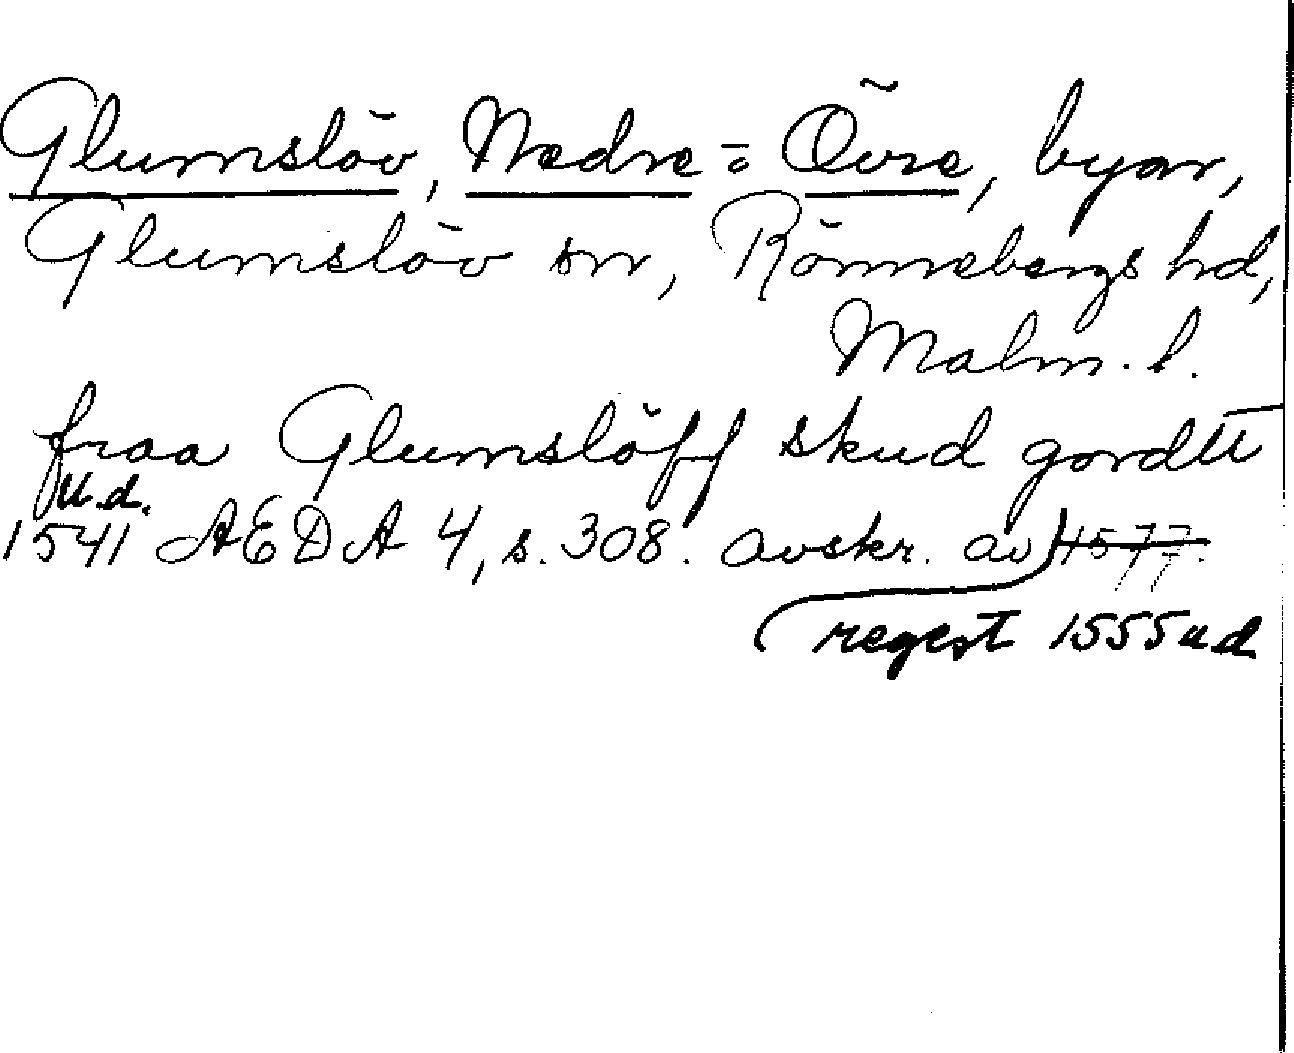 Glumslöv, Nedre o Övre, byar,
Glumslöv sn, Rönnebergs hd,
Malm. l.
fraa Glumslöff skud gordtt
U.d.
1541 AEDA 4, s. 308. avskr. av 1577.
regest 1555 ud